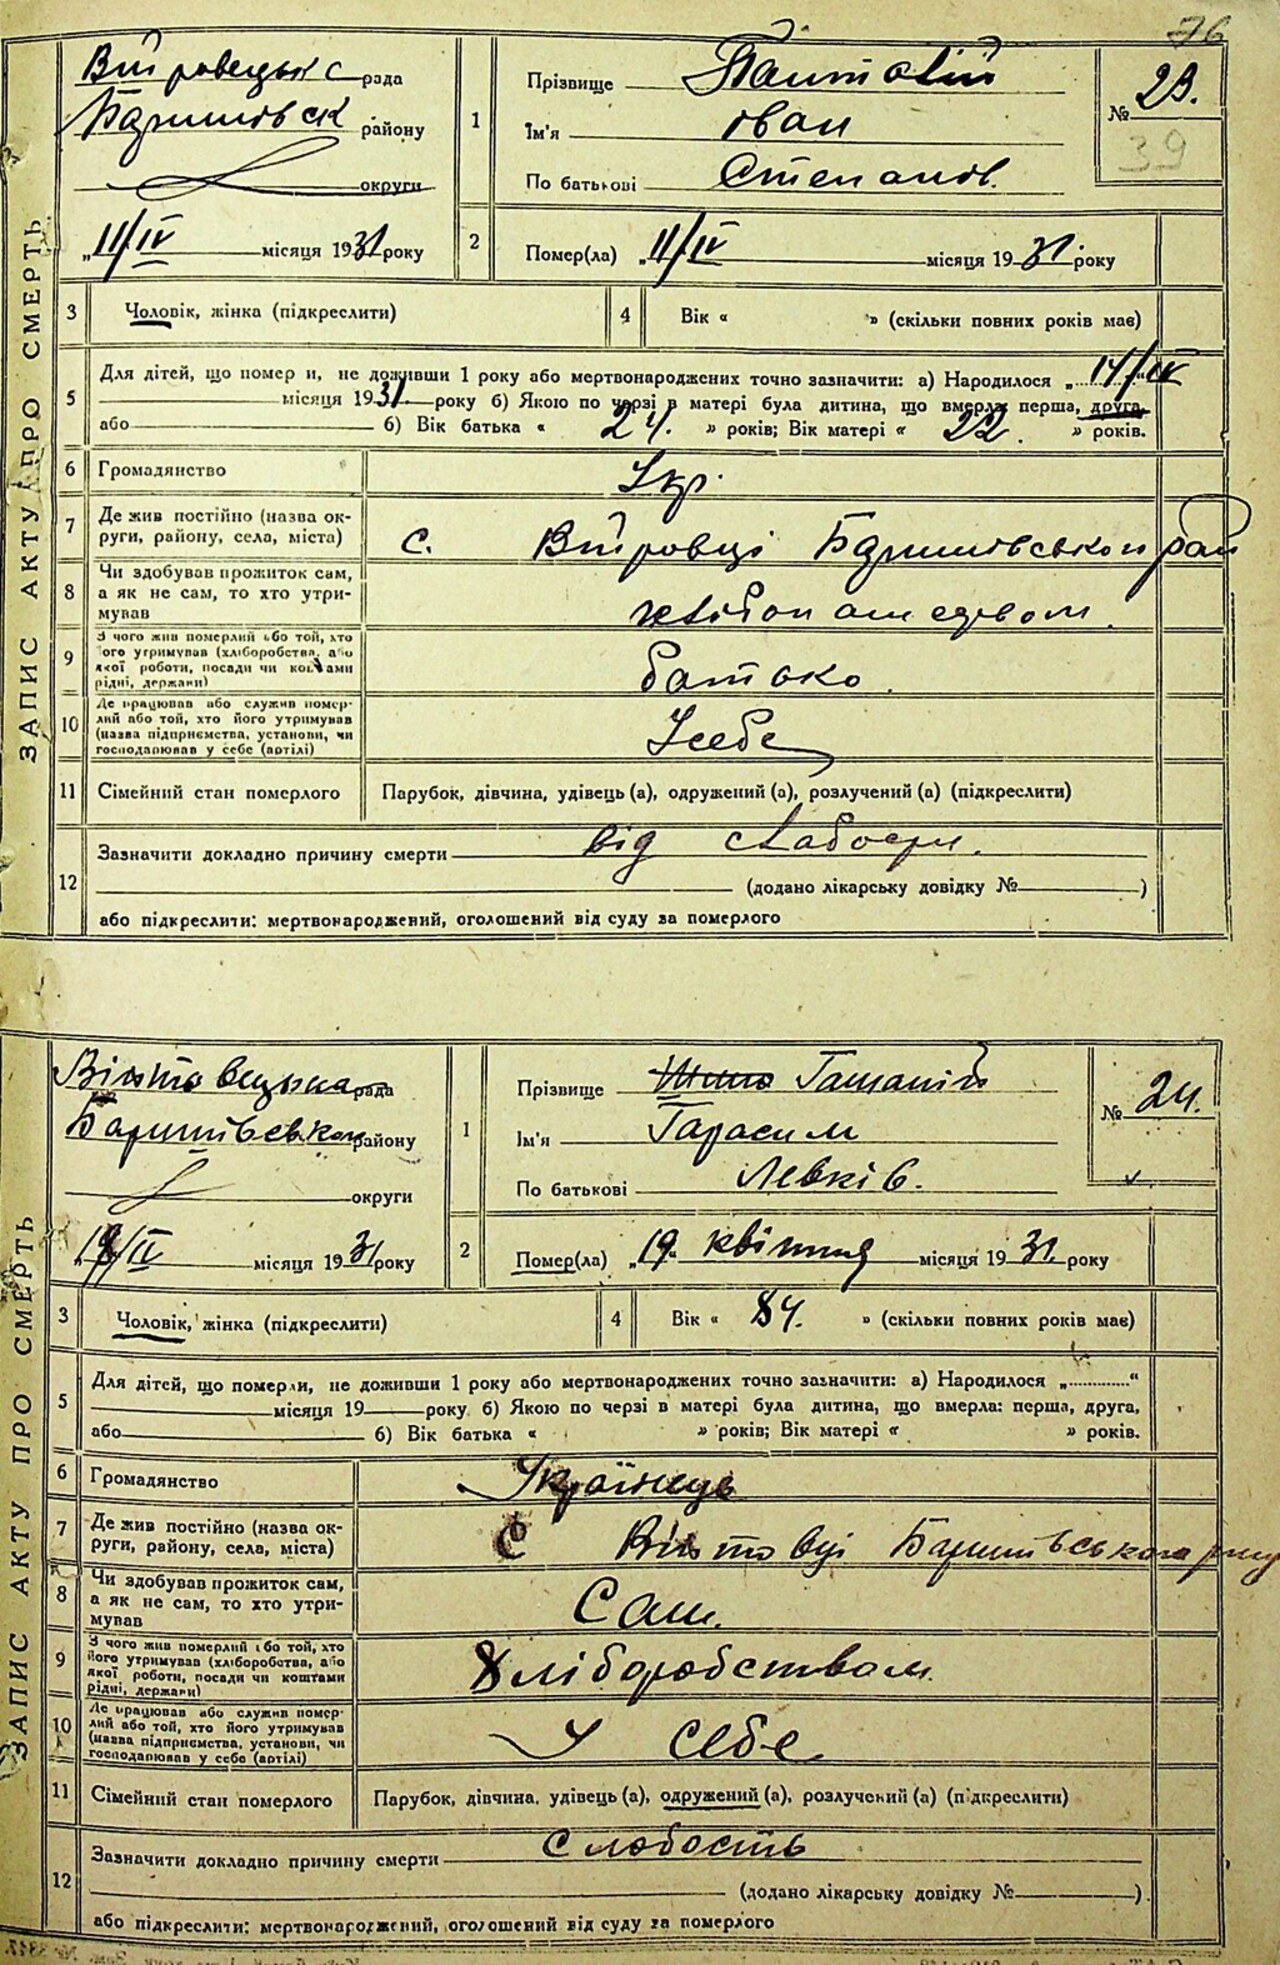 76
ЗАПИС АКТУ ПРО СМЕРТЬ
рада
району
округи
„11/IV місяця 1931 року
1
Прізвище
Ім'я Іван
По батькові Степанов.
№ 23.
39
2
Помер(ла) „11/IV місяця 1931. року
3
Чоловік, жінка (підкреслити)
4
Вік « » (скільки повних років має)
5
Для дітей, що померли, не доживши 1 року або мертвонароджених точно зазначити: а) Народилося „14/IV
місяця 1931. року б) Якою по черзі в матері була дитина, що вмерла: перша, друга,
або б) Вік батька « 24. » років; Вік матері « 22. » років.
6
Громадянство
Укр.
7
Де жив постійно (назва ок-
руги, району, села, міста)
с.
8
Чи здобував прожиток сам,
а як не сам, то хто утри-
мував
9
З чого жив померлий або той, хто
його утримував (хліборобства, або
якої роботи, посади чи коштами
рідні, держави)
батько.
10
Де працював або служив помер-
лий або той, хто його утримував
(назва підприємства, установи, чи
господарював у себе (артілі)
У себе
11
Сімейний стан померлого
Парубок, дівчина, удівець (а), одружений (а), розлучений (а) (підкреслити)
12
Зазначити докладно причину смерти від слабости.
(додано лікарську довідку № )
або підкреслити: мертвонароджений, оголошений від суду за померлого
ЗАПИС АКТУ ПРО СМЕРТЬ
рада
району
округи
/IV місяця 1931 року
1
Прізвище
Ім'я Гарасим
По батькові Левків.
№ 24.
2
Помер(ла) „19 квітня місяця 1931. року
3
Чоловік, жінка (підкреслити)
4
Вік « 84. » (скільки повних років має)
5
Для дітей, що померли, не доживши 1 року або мертвонароджених точно зазначити: а) Народилося „............“
місяця 19 року б) Якою по черзі в матері була дитина, що вмерла: перша, друга,
або б) Вік батька « » років; Вік матері « » років.
6
Громадянство
Українець
7
Де жив постійно (назва ок-
руги, району, села, міста)
С
8
Чи здобував прожиток сам,
а як не сам, то хто утри-
мував
Сам.
9
З чого жив померлий або той, хто
його утримував (хліборобства, або
якої роботи, посади чи коштами
рідні, держави)
Хліборобством.
10
Де працював або служив помер-
лий або той, хто його утримував
(назва підприємства, установи, чи
господарював у себе (артілі)
У себе
11
Сімейний стан померлого
Парубок, дівчина, удівець (а), одружений (а), розлучений (а) (підкреслити)
12
Зазначити докладно причину смерти Слобость
(додано лікарську довідку № ).
або підкреслити: мертвонароджений, оголошений від суду за померлого